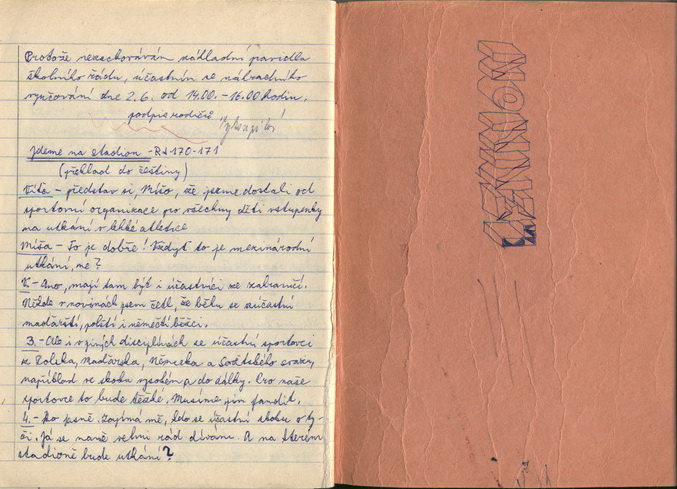 Protože nezachovávám základní pravidla
školního řádu, účastním se náhradního
vyučování dne 2.6. od 14.00.-16.00 hodin.
podpis rodičů
Jdeme na stadion - RJ 170-171
(překlad do češtiny)
Víťa - představ si, Míšo, že jsme dostali od
sportovní organizace pro všechny děti vstupenky
na utkání v lehké atletice
Míša - To je dobře! Vždyť to je mezinárodní
utkání, ne?
V. - Ano, mají tam být i účastníci ze zahraničí.
Někde v novinách jsem četl, že běhu se zúčastní
maďarští, polští i němečtí běžci.
3. - Ale i v jiných disciplínách se účastní sportovci
z Polska, Maďarska, Německa a Sovětského svazu,
například ve skoku vysokém a do dálky. Pro naše
sportovce to bude těžké. Musíme jim fandit.
4. - No jasně. Zajímá mě, kdo se účastní skoku o ty-
či. Já se na ně velmi rád dívám. A na kterém
stadioně bude utkání?